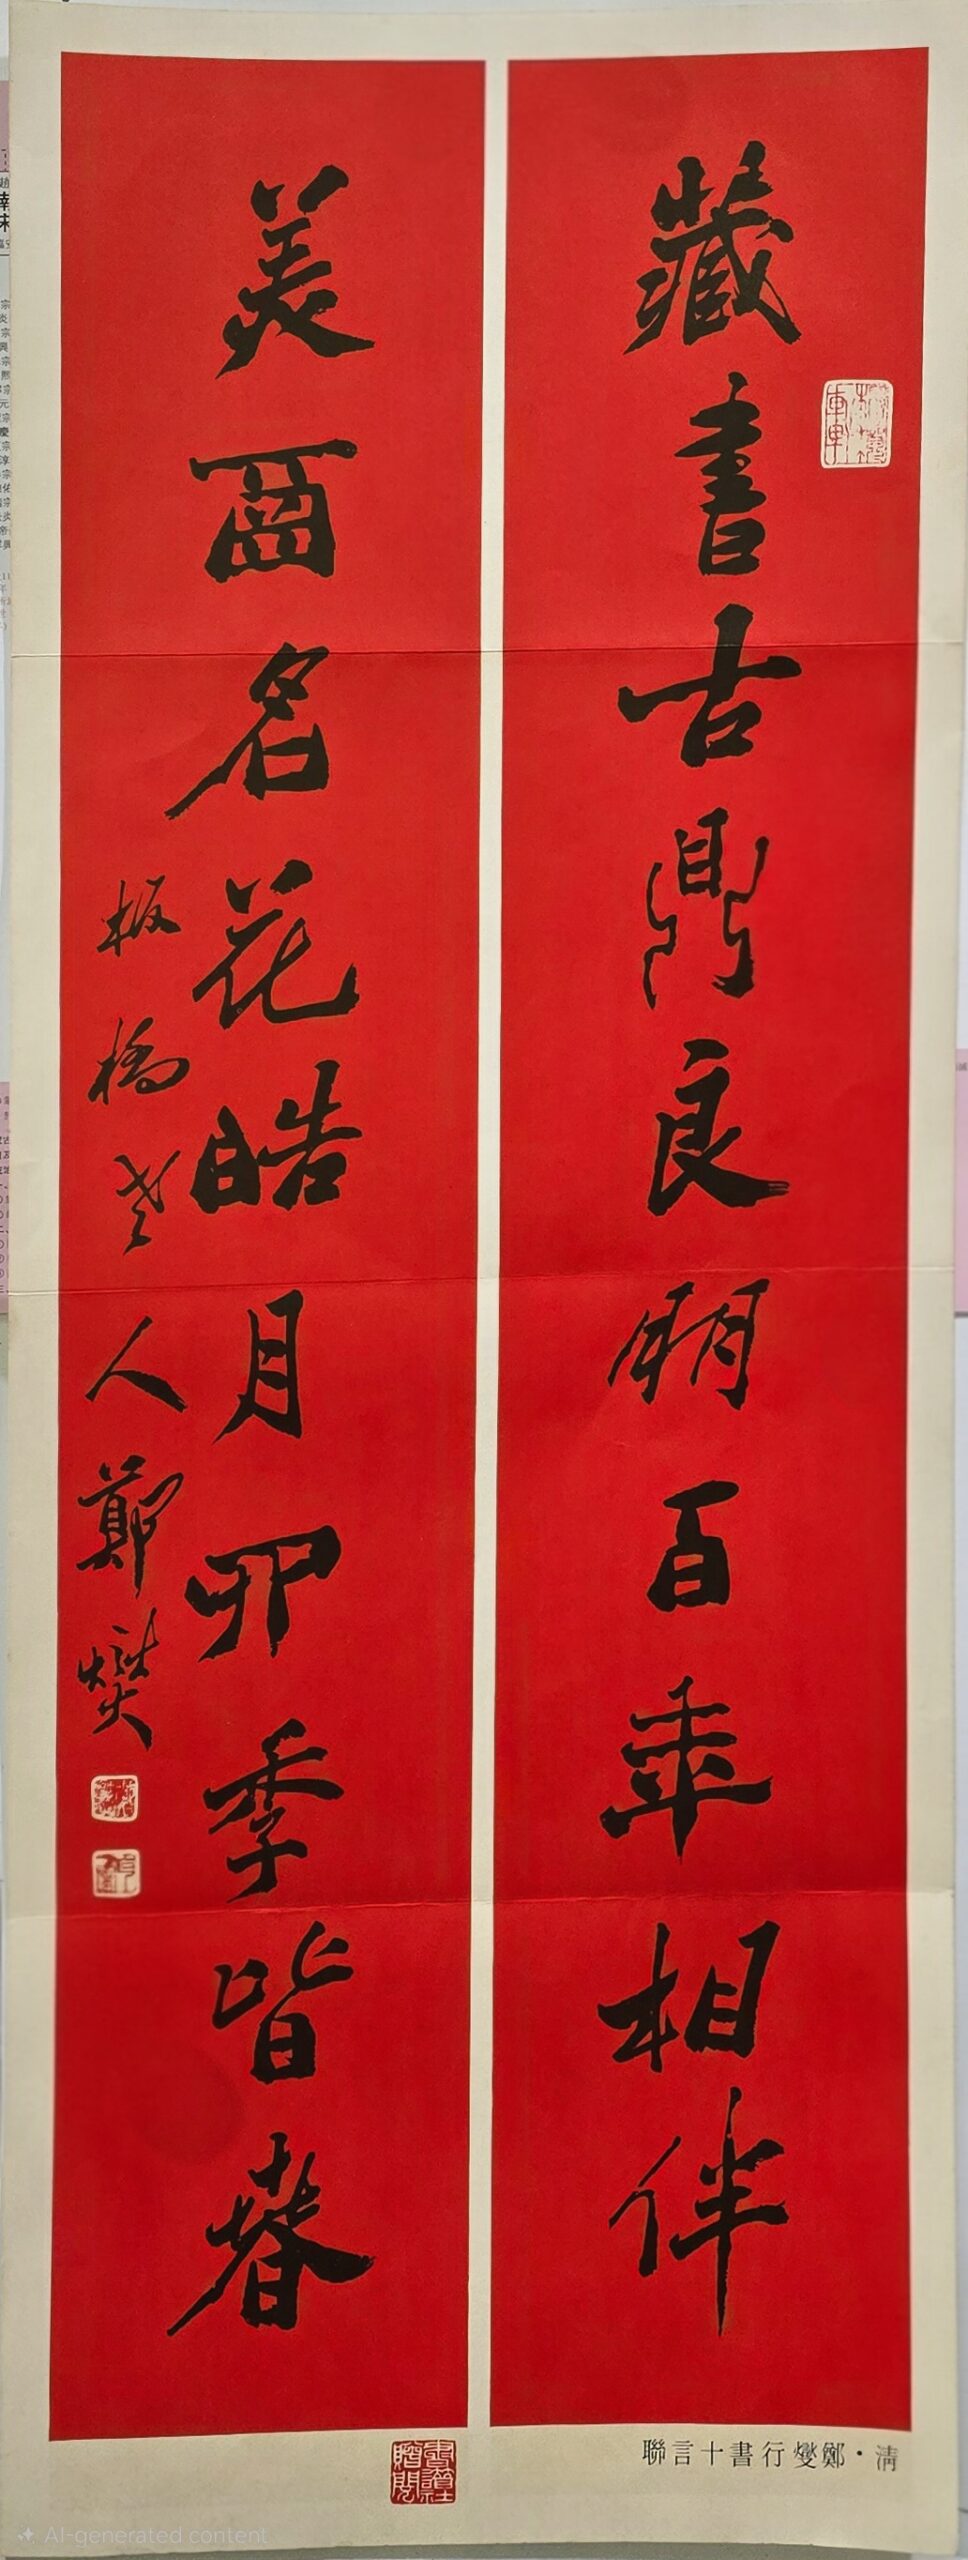 藏書古鼎良朋百年相伴
美画名花皓月四季皆春
板橋老人鄭燮
清・鄭燮行書十言聯
書道社
贈閱
AI-generated content